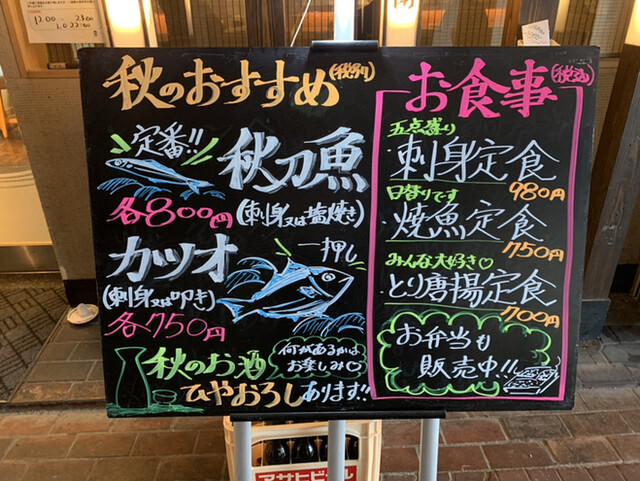 12:00 - 23:00
L.O 22:00
秋のおすすめ(税別)
定番!!
秋刀魚
各800円(刺身又は塩焼き)
カツオ
一押し
(刺身又は叩き)
各750円
秋のお酒
何があるかは
お楽しみ♡
ひやおろしあります!!
お食事(税込)
五点盛り
刺身定食
980円
日替りです
焼魚定食
750円
みんな大好き♡
とり唐揚定食
700円
お弁当も
販売中!!
アサヒビール